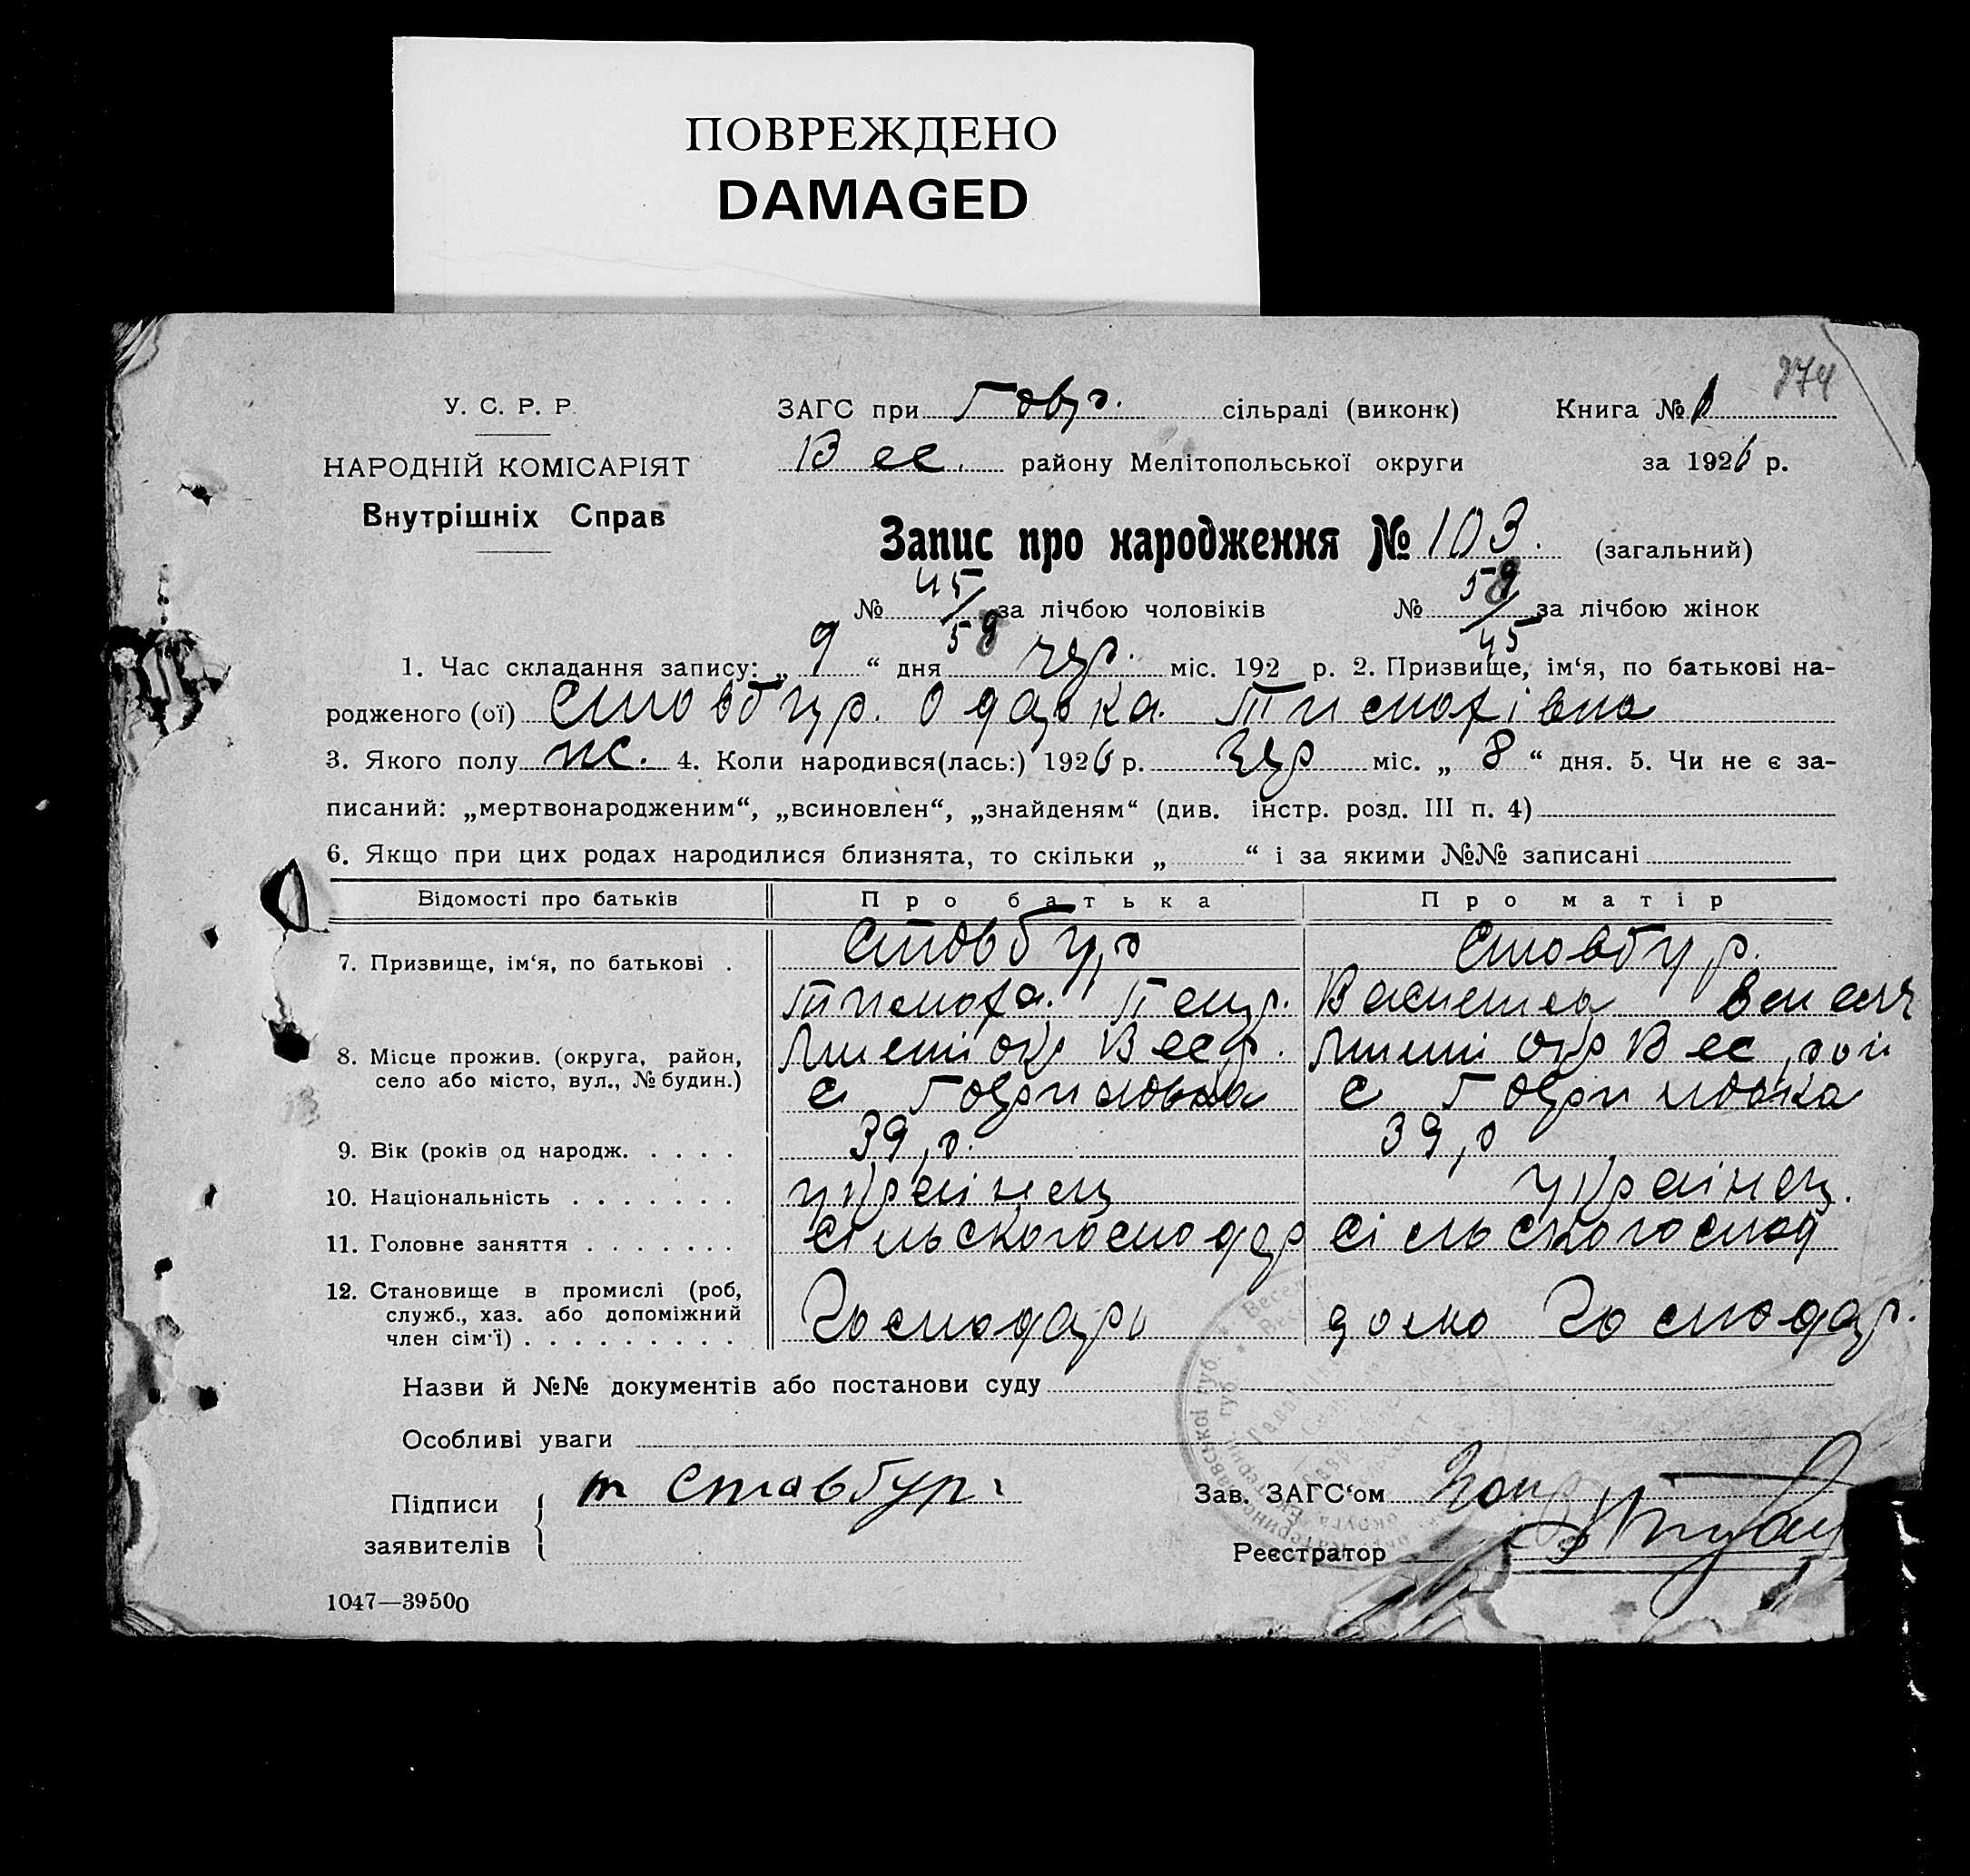 ПОВРЕЖДЕНО
DAMAGED
274
У. С. Р. Р.
НАРОДНІЙ КОМІСАРІЯТ
Внутрішніх Справ
ЗАГС при Гавр. сільраді (виконк) Книга №
Вес. району Мелітопольської округи за 1926 р.
Запис про народження № 103. (загальний)
№ 45/58 за лічбою чоловіків № 58/45 за лічбою жінок
1. Час складання запису: „ 9 “ дня чер. міс. 192 р. 2. Призвище, ім‘я, по батькові на-
родженого (ої) Стовбур. Одарка. Тимохівна
3. Якого полу ж. 4. Коли народився(лась:) 1926 р. чер міс. „ 8 “ дня. 5. Чи не є за-
писаний: „мертвонародженим“, „всиновлен“, „знайденям“ (див. інстр. розд. III п. 4)
6. Якщо при цих родах народилися близнята, то скільки „ “ і за якими №№ записані
Відомості про батьків Про батька Про матір
7. Призвище, ім‘я, по батькові . Стовбур Стовбур.
Тимоха. Петр.
8. Місце прожив. (округа, район, село або місто, вул., № будин.) окр Вес р. окр Вес рай
с Гавриловка с Гавриловка
9. Вік (років од народж. . . . . 39 р. 39 р
10. Національність . . . . . . . украінец украінец.
11. Головне заняття . . . . . . . сільскогосподар сільскогоспод
12. Становище в промислі (роб, служб., хаз. або допоміжний член сім‘ї) . . . . . . . . . Господарь домо господар.
Назви й №№ документів або постанови суду
Особливі уваги
Підписи заявителів т Ставбур
Зав. ЗАГС‘ом
Реєстратор
1047—39500